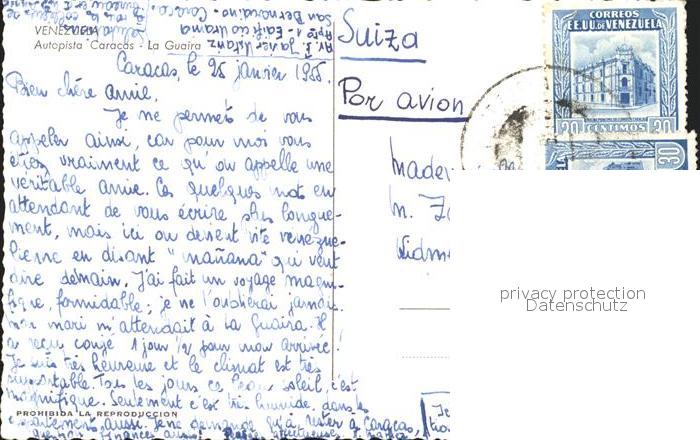 VENEZUELA
Autopista Caracas - La Guaira
Av. P. Javier Ustariz
Apto 1 - Edificio
San Bernardino. Caracas
Caracas, le 25 janvier 1955.
Bien chère amie,
Je me permets de vous
appeler ainsi, car pour moi vous
êtes vraiment ce qu'on appelle une
véritable amie. Ces quelques mots en
attendant de vous écrire plus longue-
ment, mais ici on devient vite venezue-
lienne en disant "mañana" qui veut
dire demain. J'ai fait un voyage magni-
fique, formidable; je ne l'oublierai jamais.
Mon mari m'attendait à La Guaira. Il
a reçu congé 1 jour 1/2 pour mon arrivée!
Je suis très heureuse et le climat est très
Tous les jours ce beau soleil, c'est
magnifique. Seulement c'est très humide, dans les
aussi. Je ne demande qu'à rester à Caracas,
PROHIBIDA LA REPRODUCCION
Suiza
Por avion
CORREOS
EE.UU. DE VENEZUELA
30 CENTIMOS 30
30
M.
privacy protection
Datenschutz